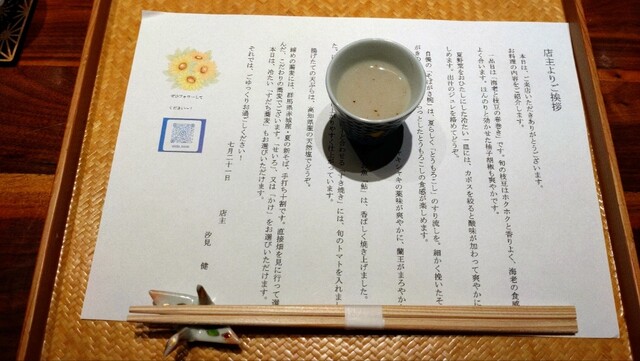 店主よりご挨拶
本日は、ご来店いただきありがとうございます。
お料理の内容をご紹介します。
一品目は「海老と枝豆の春巻き」です。旬の枝豆はホクホクと香りよく、海老の食感
よく作います。ほんのりと効かせた柚子胡椒も爽やかです。
夏野菜をおひたしにした冷たい一皿には、カボスを絞ると酸味が加わって爽やかに
しめます。出汁のジュレを絡めてどうぞ。
自慢の「そばがき椀」は、夏らしく「とうもろこし」のすり流しを。細かく挽いたそ
っとしたとうもろこしの食感が楽しめます。
キの薬味が爽やかに、蘭王がまろやか
鮎」は、香ばしく焼き上げました。
すき焼き」には、旬のトマトを入れまし
ています。
揚げたての天ぷらは、高知県産の天然塩でどうぞ。
締めの蕎麦には、群馬県赤城産・夏の新そば、手打ち十割です。直接畑を見に行って選
んだ、こだわりの蕎麦でございます。「せいろ」、又は「かけ」をお選びいただけます。
本日は、冷たい「すだち蕎麦」もお選びいただけます。
それでは、ごゆっくりお過ごしください！
七月二十一日
店主 汐見 健
ぜひフォローして
くださいー！